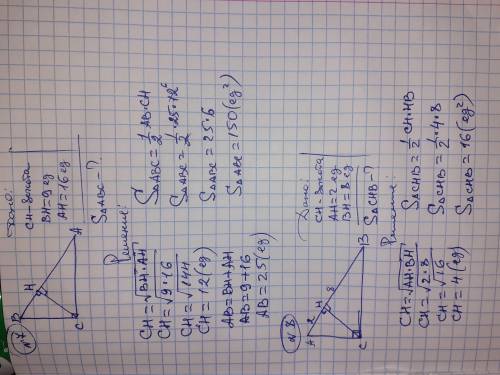 №7
Дано:
CH-высота
BH=9 eg
AH=16 eg
S∆ABC-?
B
H
C
A
Решение:
CH=√BH·AH
CH=√9·16
CH=√144
CH=12(eg)
AB=BH+AH
AB=9+16
AB=25(eg)
S∆ABC=1/2 AB·CH
S∆ABC=1/2·25·12 6
S∆ABC=25·6
S∆ABC=150(eg²)
№8
Дано:
CH-высота
AH=2 eg
BH=8 eg
S∆CHB-?
A
2
H
8
B
C
Решение:
CH=√AH·BH
CH=√2·8
CH=√16
CH=4(eg)
S∆CHB=1/2 CH·HB
S∆CHB=1/2·4·8
S∆CHB=16(eg²)